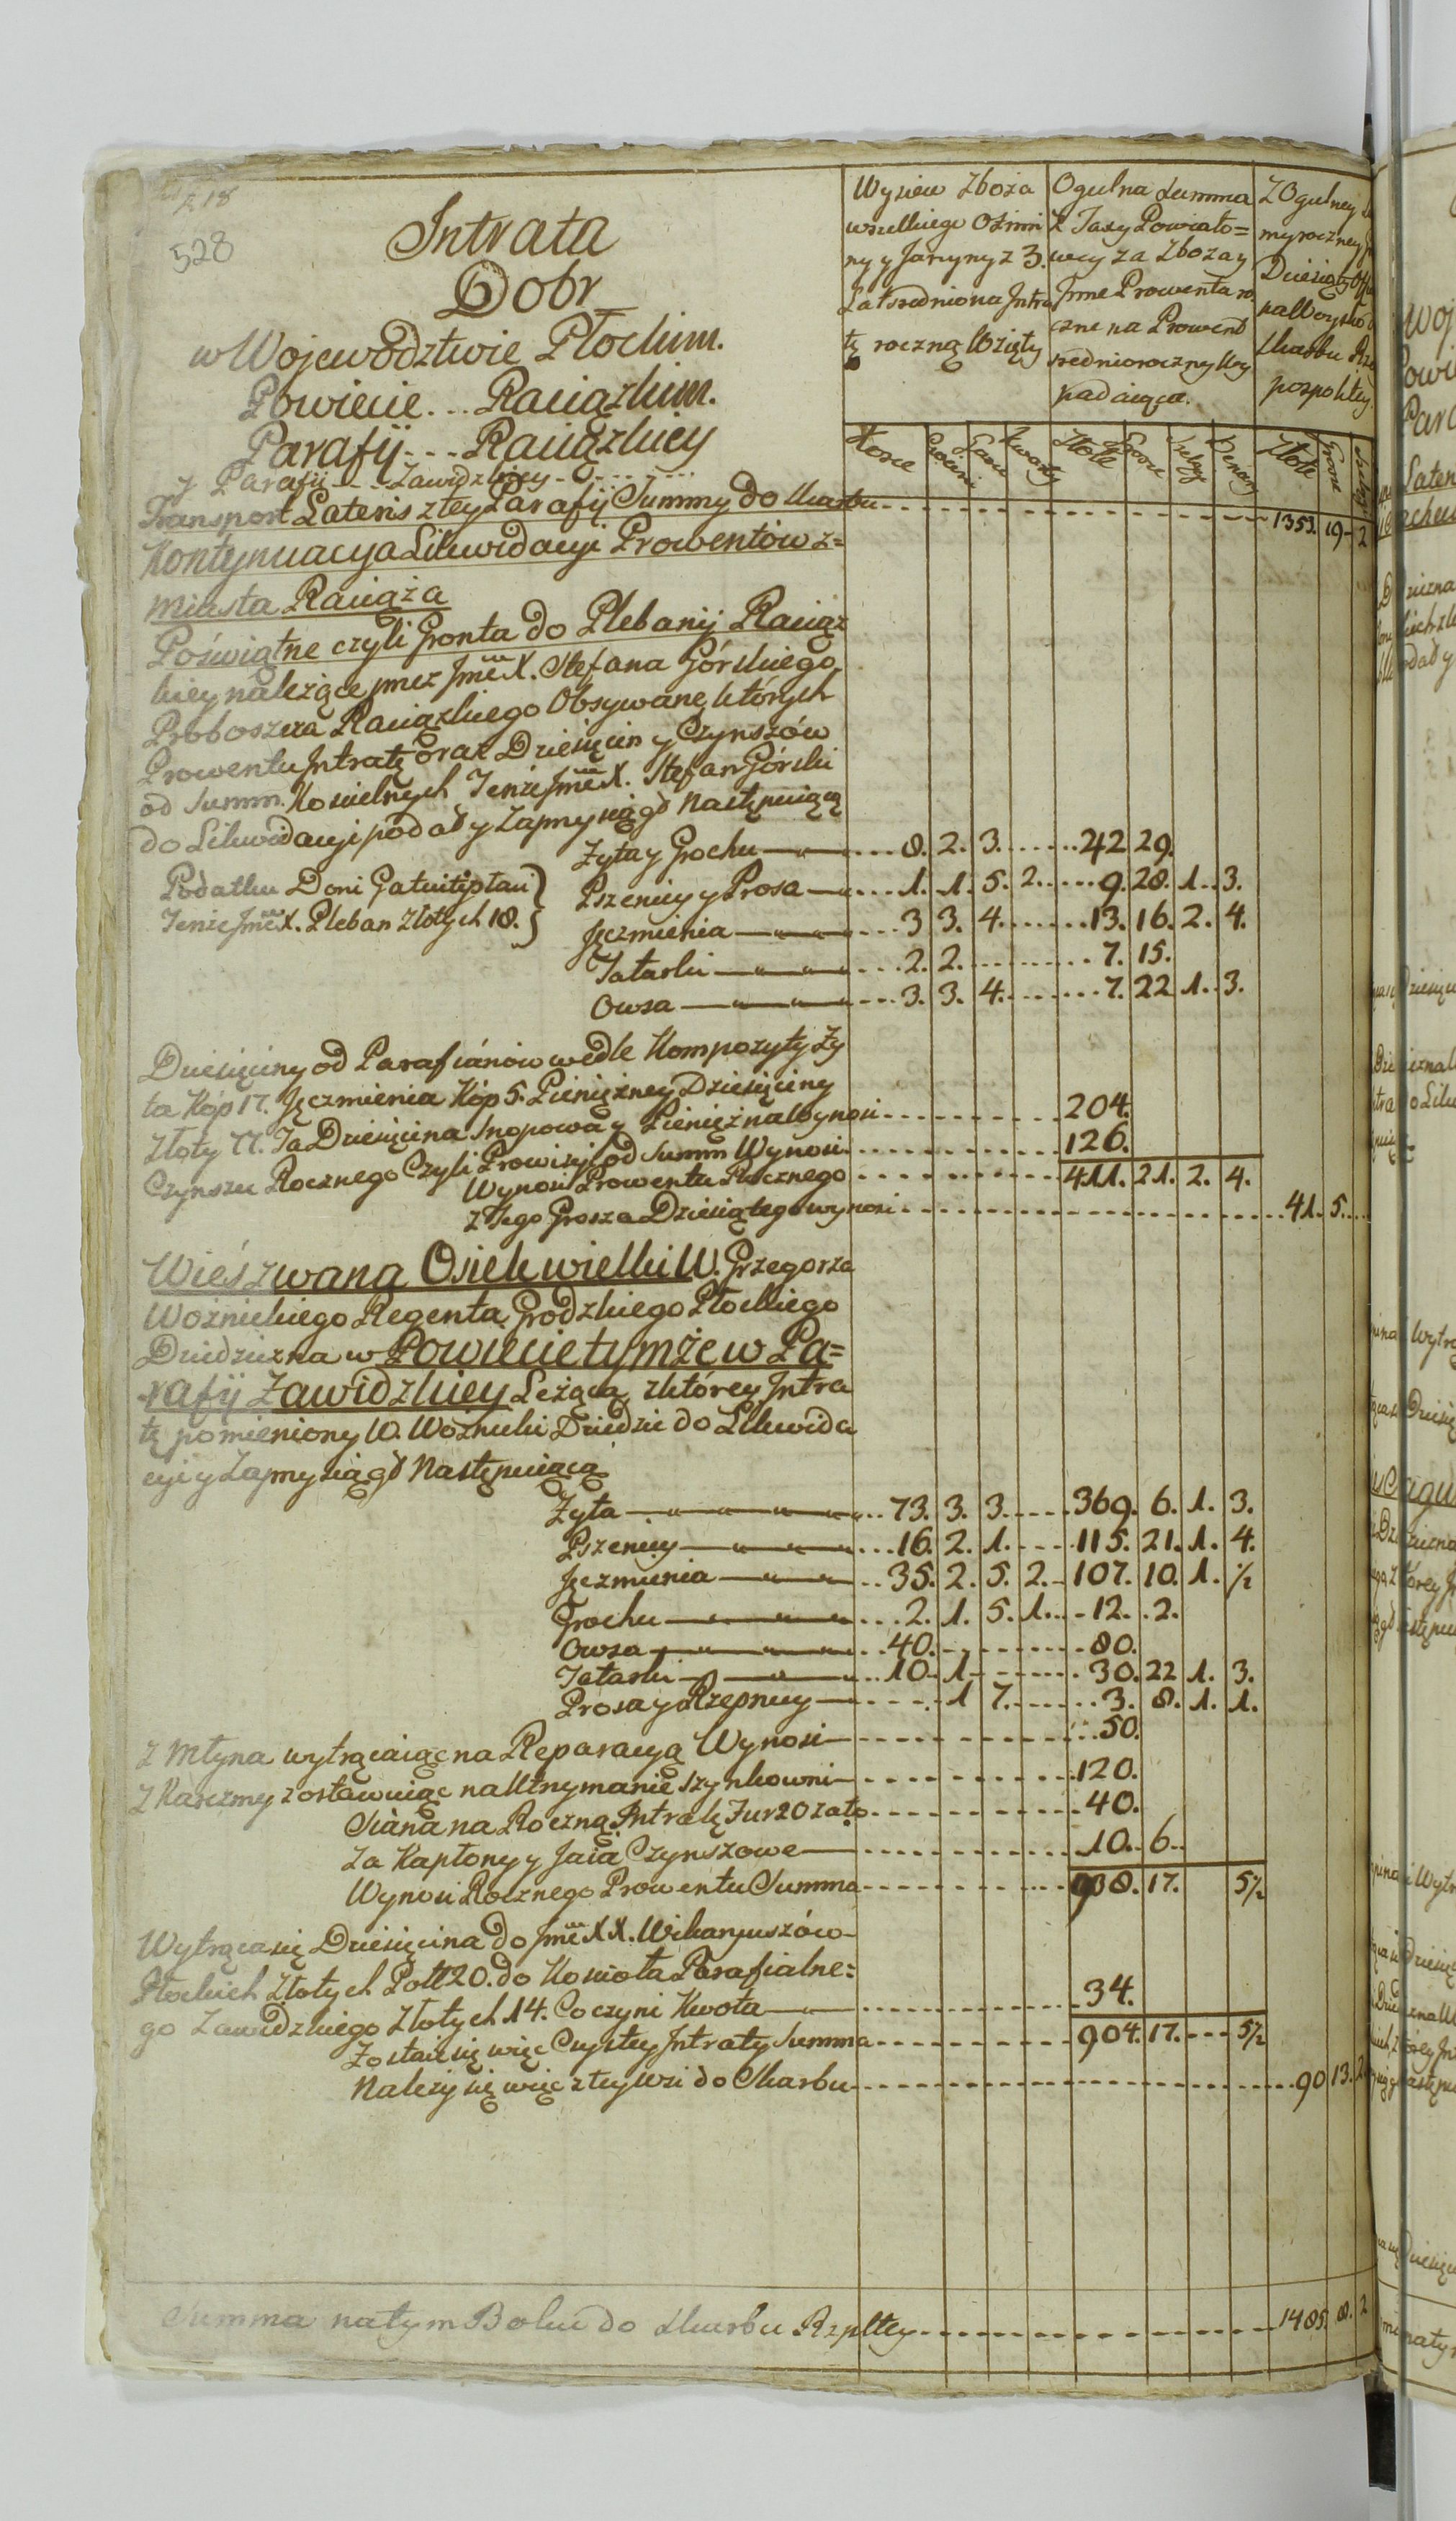 528
Intrata
Dobr
w Wojewodztwie Płockim.
Powiecie... Raciązkim.
Parafij... Raciązkiey
y Parafij... Zawidzkiey
Wysiew Zboża
wszelkiego Ozimi
ny y Jarzyny z 3.
Lat srednioną Intra
tę roczną Wzięty
Ogulna Summa
z Taxy Powiato=
wey za Zboża y
Jnne Prowenta ro
czne na Prowent
srednioroczny Wy
padaiąca.
Z Ogulney
my roczney
Dziesiąty
na Woysko
Skarbu Rze
pospolitey
Korce Garce Kwarty Złote Grosze Szelągi Denary Złote Grosze
Transport Lateris z tey Parafij Summy do Skarbu 1353. 19. 2
Kontynuacya Likwidacyi Prowentów z=
Miasta Raciąża
Poświątne czyli Gronta do Plebanij Raciąz
kiey należące przez Jmć X. Stefana Górskiego
Proboszcza Raciązkiego Obsywane, których
Prowentu Intratę oraz Dziesięcin y Czynszów
od Summ. Koscielnych Tenże Jmć X. Stefan Górski
do Likwidacyi podał y Zaprzysiągł Następuiącą
Zyta y Grochu 8. 2. 3. 42 29.
Podatku Doni Gatuiti płaci
Tenże Jmć X. Pleban Złotych 18.
Pszenicy y Prosa 1. 1. 5. 2. 9. 28. 1. 3.
Jęczmienia 3 3. 4. 13. 16. 2. 4.
Tatarki 2. 2. 7. 15.
Owsa 3. 3. 4. 7. 22 1. 3.
Dziesięciny od Parafiánow wedle Kompozyty Zy
ta Kóp 17. Jęczmienia Kóp 5. Pieniężney Dziesięciny
Złoty 77. Ta Dziesięcina Snopowa y Pieniężna Wynosi 204.
Czynszu Rocznego Czyli Prowizyi od Summ Wynosi 126.
Wynosi Prowentu Rocznego 411. 21. 2. 4.
z Tego Grosza Dziesiątego wynosi 41. 5.
Wieś zwana Osiek wielki W. Grzegorza
Woźnickiego Regenta Grodzkiego Płockiego
Dziedziczna w Powiecie tymże w Pa=
rafij Zawidzkiey Leżąca, z którey Intra
tę pomieniony W. Woźnicki Dziedzic do Likwida
cyi y Zaprzysiągł Następuiącą
Zyta 73. 3. 3. 369. 6. 1. 3.
Pszenicy 16. 2. 1. 115. 21. 1. 4.
Jęczmienia 35. 2. 5. 2. 107. 10. 1. ½
Grochu 2. 1. 5. 1. 12. 2.
Owsa 40. 80.
Tatarki 10. 1 30. 22 1. 3.
Prosa y Rzepnicy 1 7. 3. 8. 1. 1.
Z Młyna wytrącaiąc na Reparacyą Wynosi 50.
Z Karczmy zostawuiąc na Utrzymanie Szynkowni 120.
Siána na Roczną Intratę Fur 20 za to 40.
Za Kapłony y Jaia Czynszowe 10. 6
Wynosi Rocznego Prowentu Summa 938. 17. 5½
Wytrąca się Dziesięcina do Jmć XX. Wikaryuszów
Płockich Złotych Pol: 20. do Koscioła Parafialne:
go Zawidzkiego Złotych 14. Co czyni Kwota 34.
Zostaie się więc Czystey Intraty Summa 904. 17. 5½
Należy się więc z tey Wsi do Skarbu 90 13. 2
Summa na tym Boku do Skarbu Rzpltey 1485. 8. 2